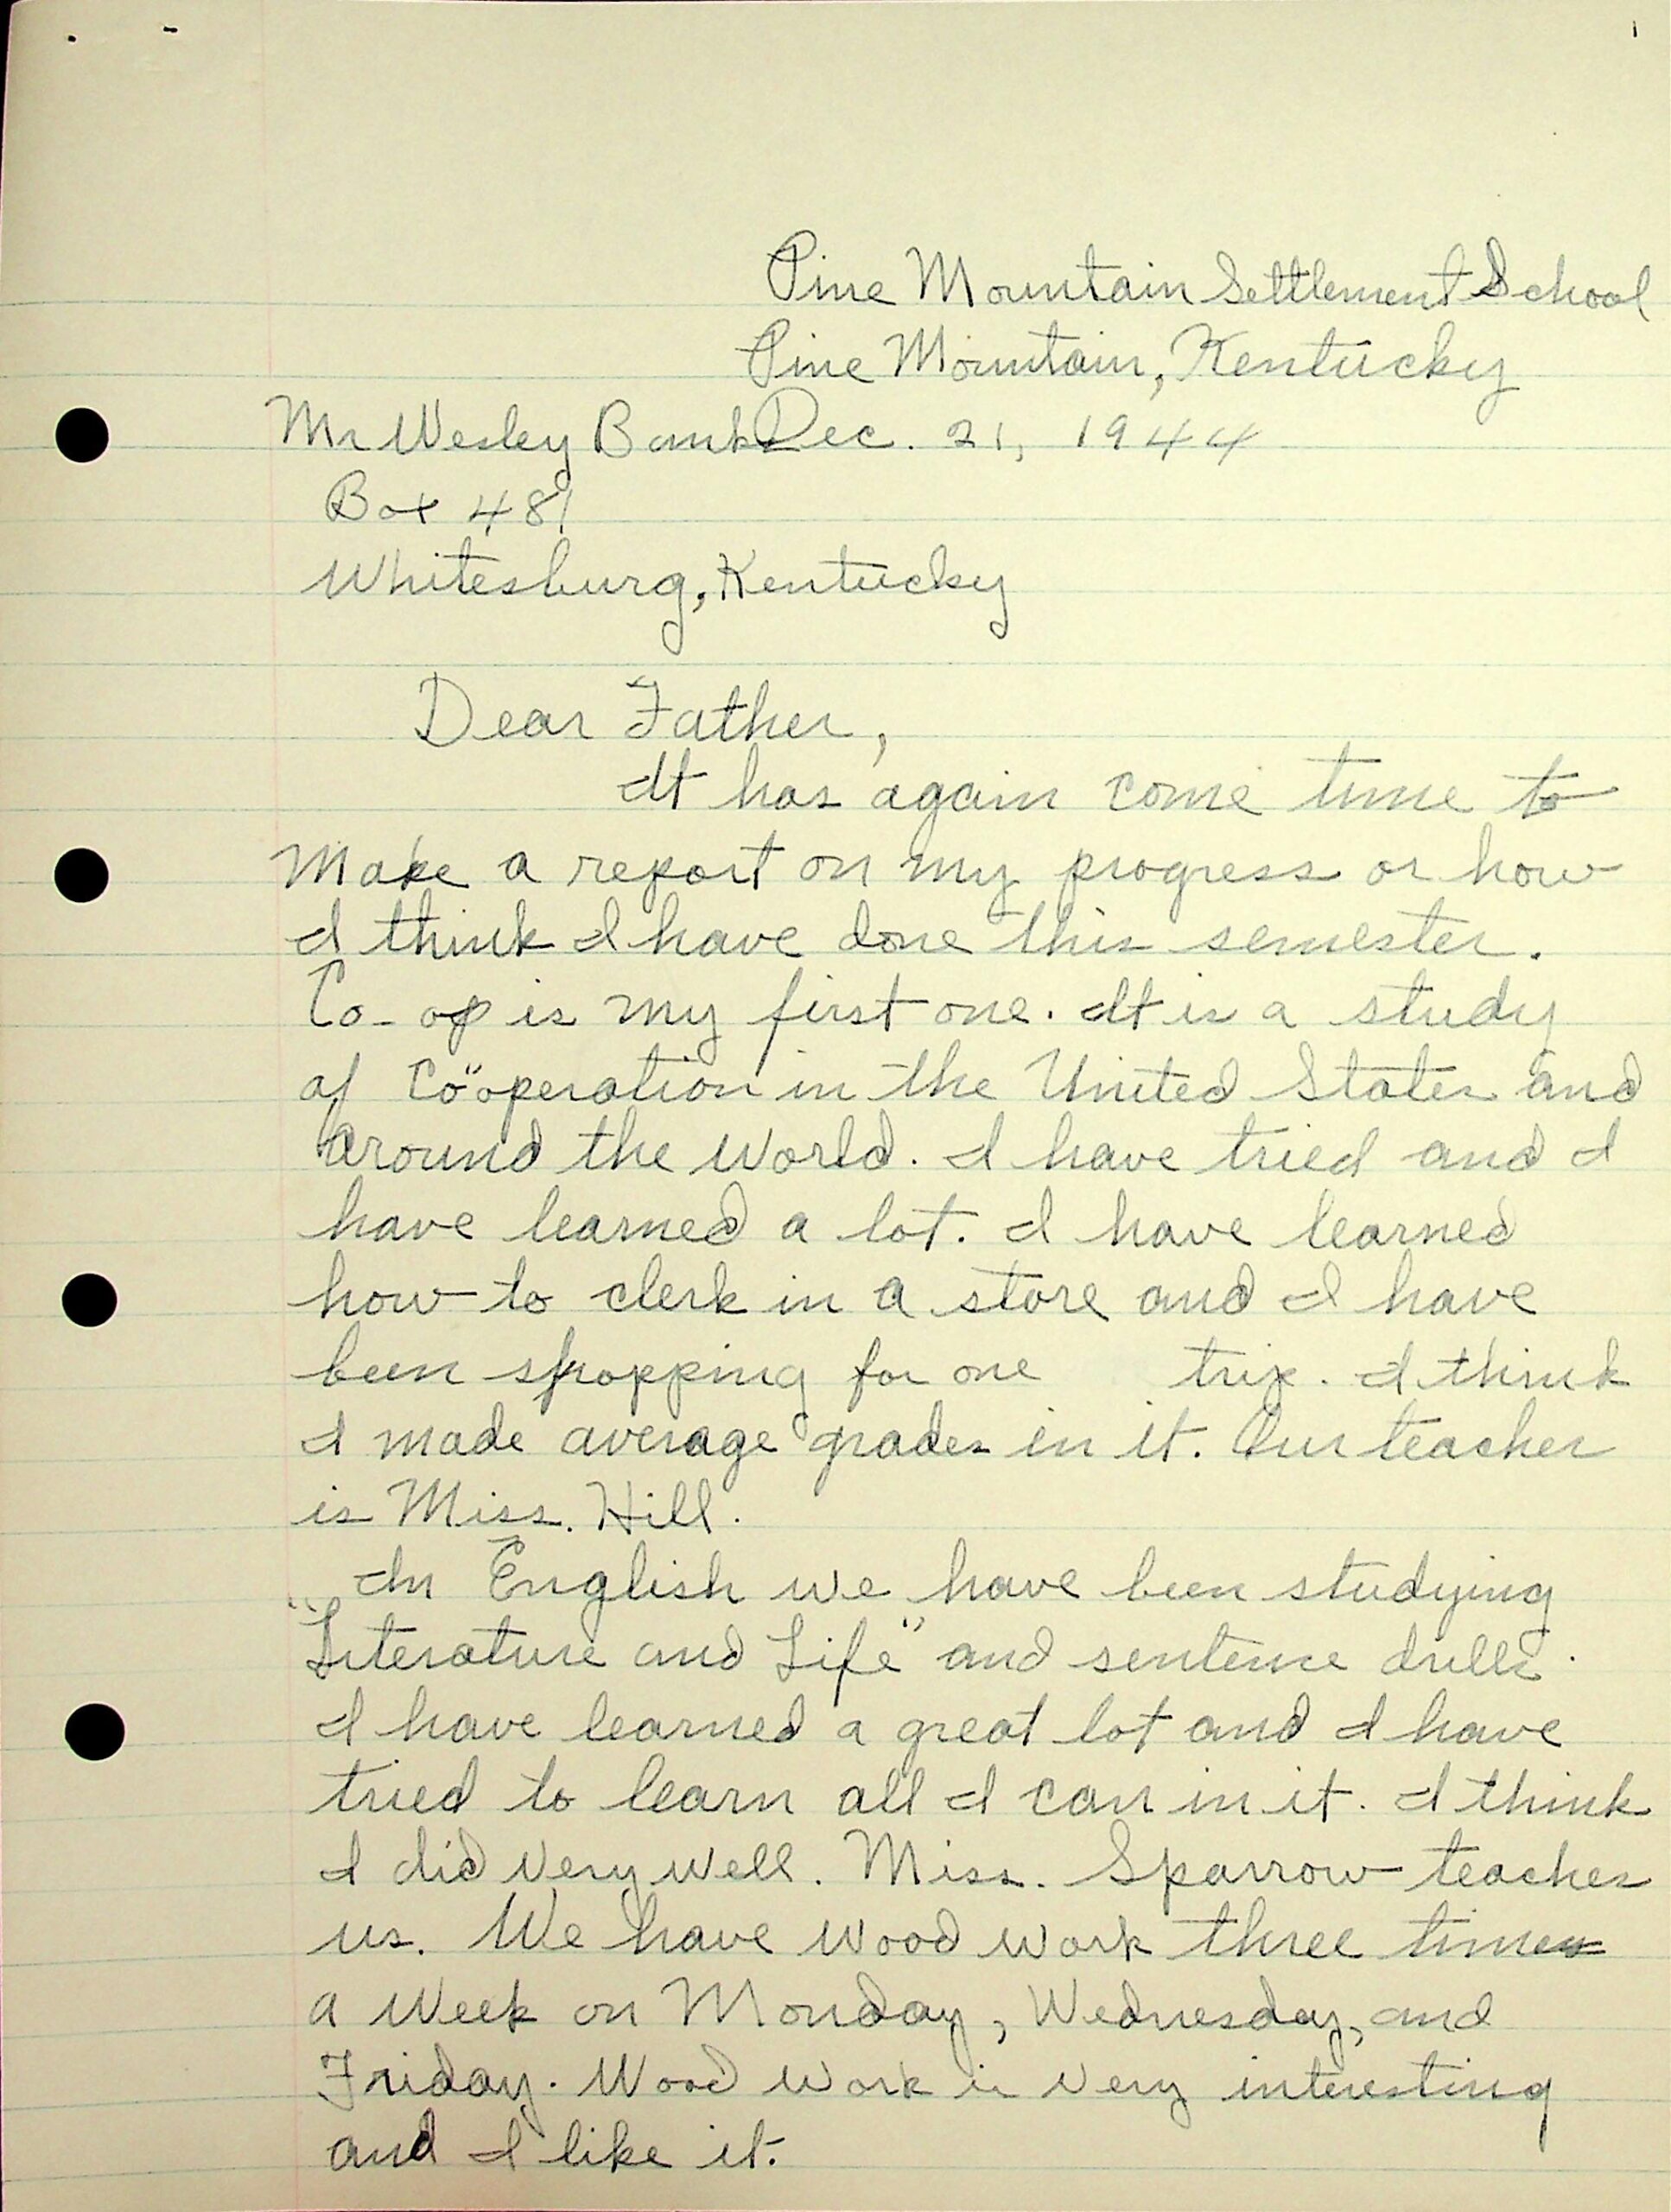 Pine Mountain Settlement School
Pine Mountain, Kentucky
Mr Wesley Banks Dec. 21, 1944
Box 481
Whitesburg, Kentucky
Dear Father,
It has again come time to
Make a report on my progress or how
I think I have done this semester.
Co-op is my first one. It is a study
of Coöperation in the United States and
Around the World. I have tried and I
have learned a lot. I have learned
how to clerk in a store and I have
been shopping for one trip. I think
I made average grades in it. Our teacher
is Miss. Hill.
In English we have been studying
"Literature and Life" and sentence drills.
I have learned a great lot and I have
tried to learn all I can in it. I think
I did very well. Miss. Sparrow teaches
us. We have Wood work three times
a Week on Monday, Wednesday, and
Friday. Wood work is very interesting
and I like it.